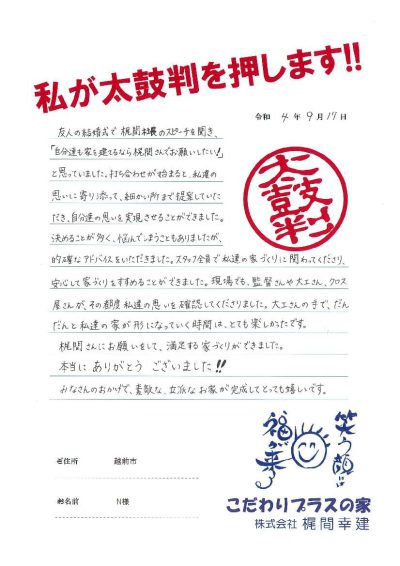 私が太鼓判を押します!!
令和 4 年 9 月 17 日
友人の結婚式で梶間社長のスピーチを聞き、
「自分達も家を建てるなら梶間さんでお願いしたい!」
と思っていました。打ち合わせが始まると、私達の
思いに寄り添って、細かい所まで提案していた
だき、自分達の思いを実現させることができました。
決めることが多く、悩んでしまうこともありましたが、
的確なアドバイスをいただきました。スタッフ全員で私達の家づくりに関わってくださり、
安心して家づくりをすすめることができました。現場でも、監督さんや大工さん、クロス
屋さんが、その都度私達の思いを確認してくださりました。大工さんの手で、だん
だんと私達の家が形になっていく時間は、とても楽しかったです。
梶間さんにお願いをして、満足する家づくりができました。
本当にありがとうございました!!
みなさんのおかげで、素敵な、立派なお家が完成してとっても嬉しいです。
太鼓判
笑う顔には
福が来る
ご住所 越前市
お名前 N様
こだわりプラスの家
株式会社 梶間幸建